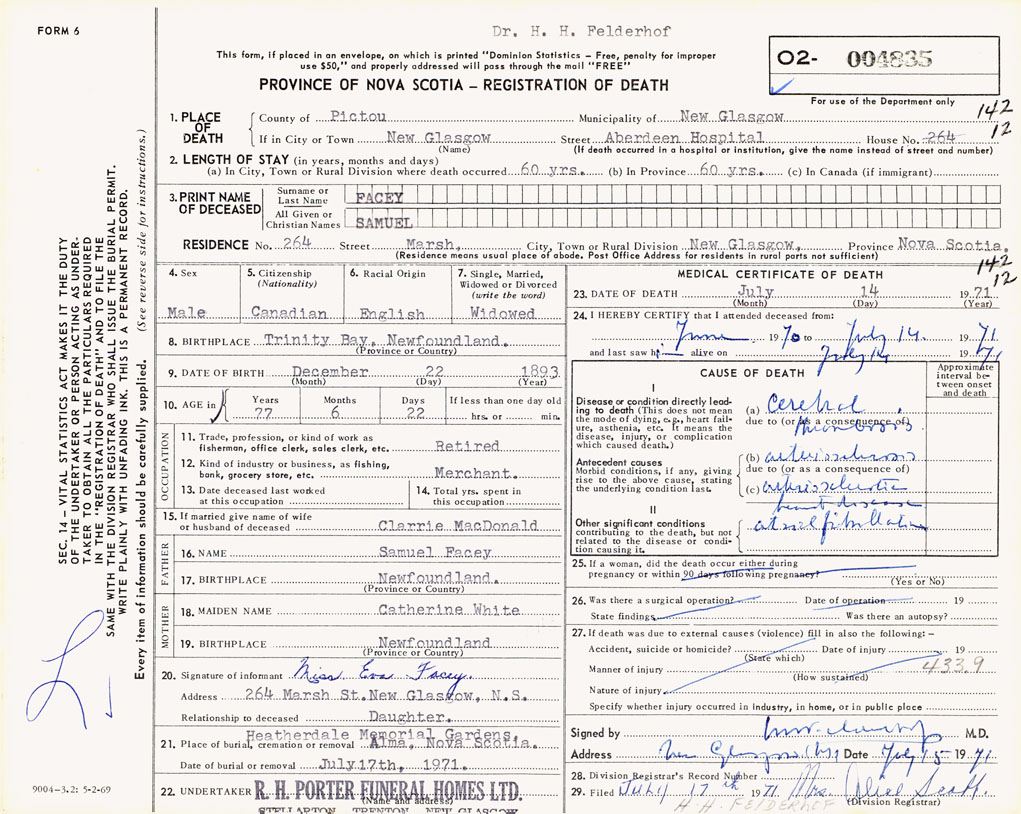 FORM 6
Dr. H. H. Felderhof
This form, if placed in an envelope, on which is printed "Dominion Statistics – Free, penalty for improper
use $50," and properly addressed will pass through the mail "FREE"
PROVINCE OF NOVA SCOTIA – REGISTRATION OF DEATH
O2- 004835
For use of the Department only
142
12
1. PLACE OF DEATH
County of Pictou Municipality of New Glasgow
If in City or Town New Glasgow Street Aberdeen Hospital House No. 264
(Name) (If death occurred in a hospital or institution, give the name instead of street and number)
2. LENGTH OF STAY (in years, months and days)
(a) In City, Town or Rural Division where death occurred 60 yrs. (b) In Province 60 yrs. (c) In Canada (if immigrant)
3. PRINT NAME OF DECEASED
Surname or Last Name FACEY
All Given or Christian Names SAMUEL
RESIDENCE No. 264 Street Marsh, City, Town or Rural Division New Glasgow, Province Nova Scotia.
(Residence means usual place of abode. Post Office Address for residents in rural parts not sufficient)
142
12
4. Sex
Male
5. Citizenship
(Nationality)
Canadian
6. Racial Origin
English
7. Single, Married,
Widowed or Divorced
(write the word)
Widowed
8. BIRTHPLACE Trinity Bay, Newfoundland.
(Province or Country)
9. DATE OF BIRTH December 22 1893
(Month) (Day) (Year)
10. AGE in
Years Months Days If less than one day old
77 6 22 hrs. or min.
OCCUPATION
11. Trade, profession, or kind of work as
fisherman, office clerk, sales clerk, etc. Retired
12. Kind of industry or business, as fishing,
bank, grocery store, etc. Merchant.
13. Date deceased last worked
at this occupation
14. Total yrs. spent in
this occupation
15. If married give name of wife
or husband of deceased Clarrie MacDonald
FATHER
16. NAME Samuel Facey
17. BIRTHPLACE Newfoundland.
(Province or Country)
MOTHER
18. MAIDEN NAME Catherine White
19. BIRTHPLACE Newfoundland
(Province or Country)
20. Signature of informant Miss Eva Facey.
Address 264 Marsh St. New Glasgow, N.S.
Relationship to deceased Daughter.
Heatherdale Memorial Gardens,
21. Place of burial, cremation or removal Alma, Nova Scotia.
Date of burial or removal July 17th, 1971.
22. UNDERTAKER R. H. PORTER FUNERAL HOMES LTD.
(Name and address)
STELLARTON TRENTON NEW GLASGOW
MEDICAL CERTIFICATE OF DEATH
23. DATE OF DEATH July 14 1971
(Month) (Day) (Year)
24. I HEREBY CERTIFY that I attended deceased from:
June 1970 to July 14. 1971
and last saw h alive on July 14 1971
CAUSE OF DEATH
Approximate
interval be-
tween onset
and death
I
Disease or condition directly lead-
ing to death (This does not mean
the mode of dying, e.g., heart fail-
ure, asthenia, etc. It means the
disease, injury, or complication
which caused death.)
(a) Cerebral
due to (or as a consequence of)
thrombosis
Antecedent causes
Morbid conditions, if any, giving
rise to the above cause, stating
the underlying condition last.
(b) arteriosclerosis
due to (or as a consequence of)
(c) arteriosclerotic
heart disease
II
Other significant conditions
contributing to the death, but not
related to the disease or condi-
tion causing it.
atrial fibrillation
25. If a woman, did the death occur either during
pregnancy or within 90 days following pregnancy?
(Yes or No)
26. Was there a surgical operation? Date of operation 19
State findings Was there an autopsy?
27. If death was due to external causes (violence) fill in also the following: –
Accident, suicide or homicide? Date of injury 19
(State which)
Manner of injury 433.9
(How sustained)
Nature of injury
Specify whether injury occurred in industry, in home, or in public place
Signed by M.D.
Address New Glasgow (NS) Date July 15 1971
28. Division Registrar's Record Number
29. Filed July 17th 1971 Mrs. Alice Scott
H H FELDERHOF (Division Registrar)
SEC. 14 – VITAL STATISTICS ACT MAKES IT THE DUTY
OF THE UNDERTAKER OR PERSON ACTING AS UNDER-
TAKER TO OBTAIN ALL THE PARTICULARS REQUIRED
IN THE "REGISTRATION OF DEATH" AND TO FILE THE
SAME WITH THE DIVISION REGISTRAR WHO SHALL ISSUE THE BURIAL PERMIT.
WRITE PLAINLY WITH UNFADING INK. THIS IS A PERMANENT RECORD.
Every item of information should be carefully supplied. (See reverse side for instructions.)
9004-3.2: 5-2-69